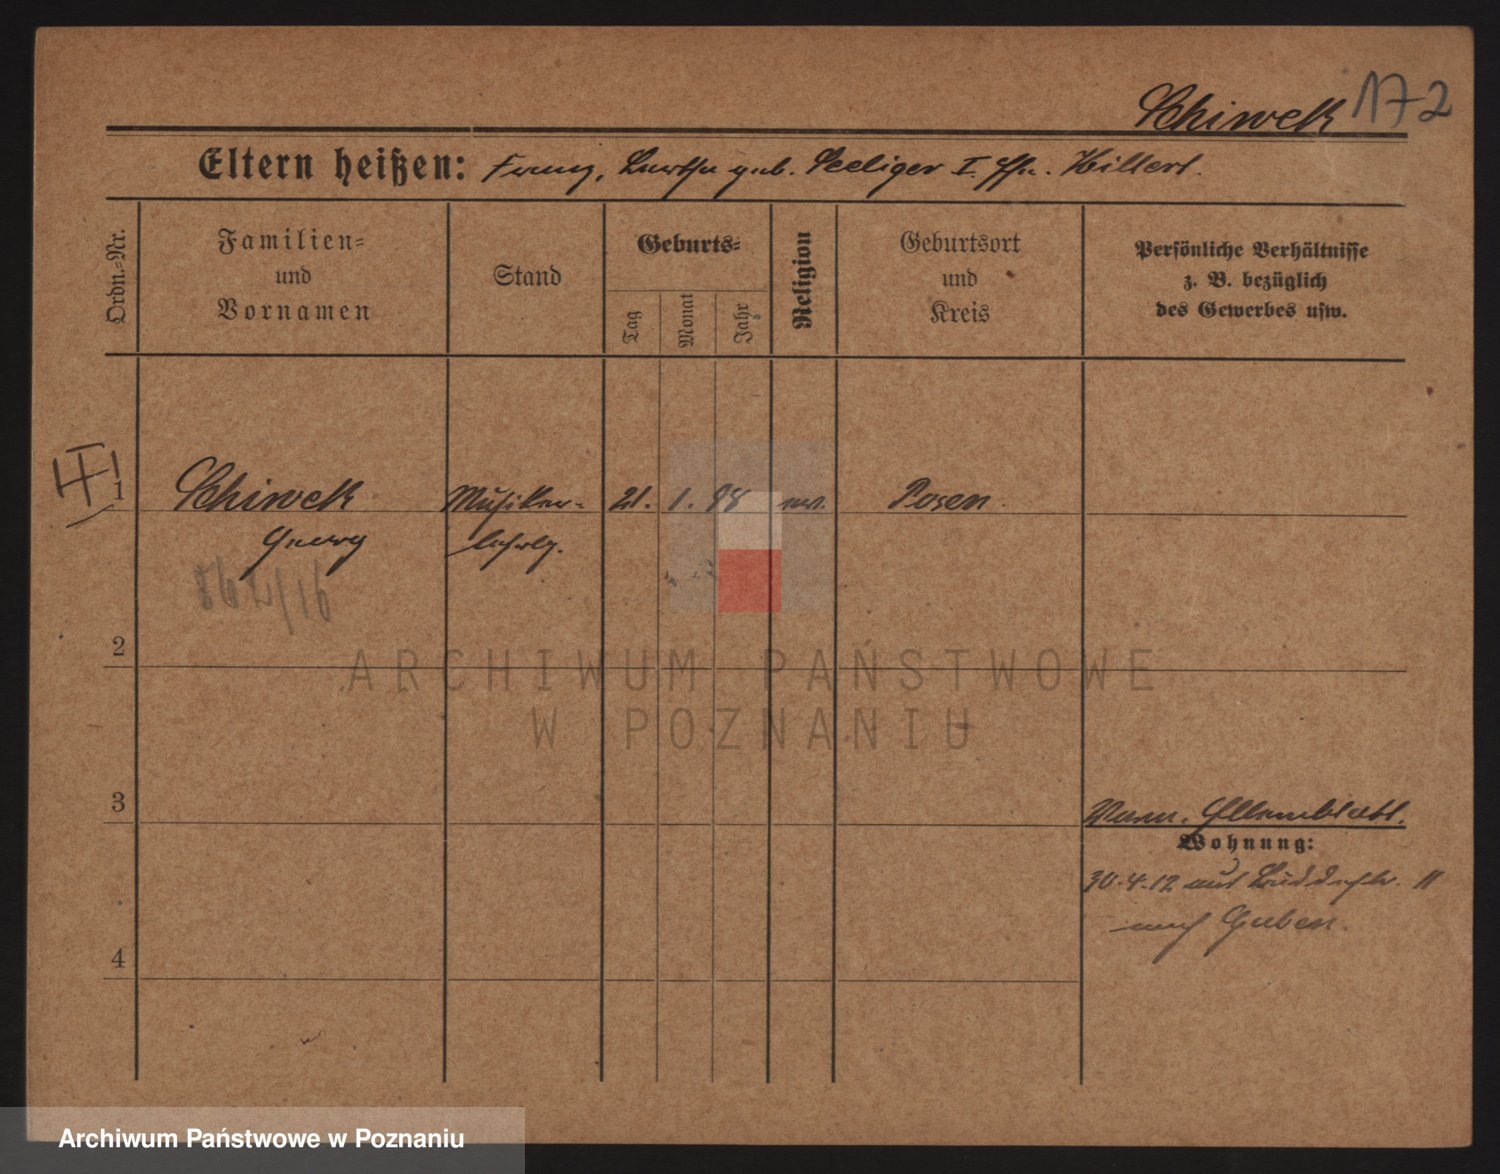 Schiwek 172
Eltern heißen: Franz, Bertha geb. Seeliger I. Ehe. Hillert.
Ordn.-Nr.
Familien-
und
Vornamen
Stand
Geburts-
Tag
Monat
Jahr
Religion
Geburtsort
und
Kreis
Persönliche Verhältnisse
z. B. bezüglich
des Gewerbes usw.
1
Schiwek Musiker- 21. 1. 98 ev. Posen.
Georg lehrlg.
862/16
2
ARCHIWUM PAŃSTWOWE
W POZNANIU
3
Wohnung:
30.4.12 aus 11
nach Guben.
4
Archiwum Państwowe w Poznaniu